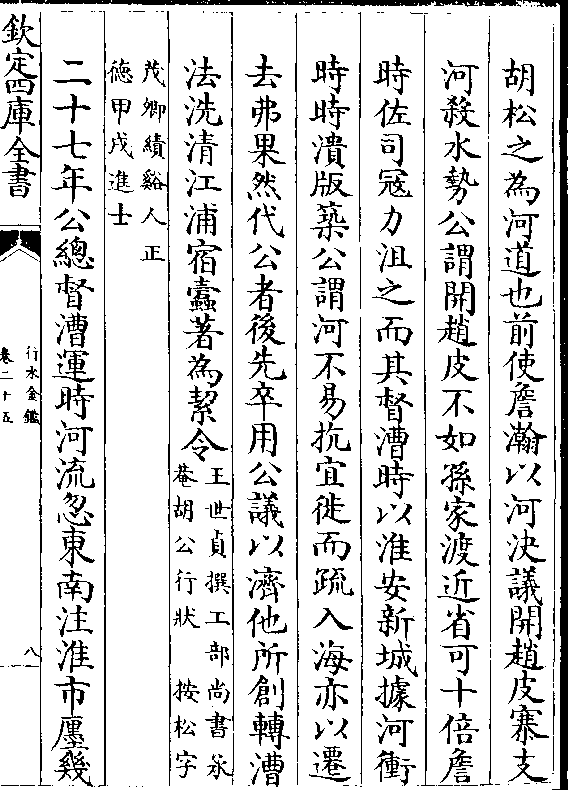 胡松之為河道也前使詹瀚以河決議開趙皮寨支
河殺水勢公謂開趙皮不如孫家渡近省可十倍詹
時佐司寇力沮之而其督漕時以淮安新城據河衝
時時潰版築公謂河不易抗宜徙而疏入海亦以遷
去弗果然代公者後先卒用公議以濟他所創轉漕
法洗清江浦宿蠹著為絜令
王世貞撰工部尚書承
菴胡公行狀 按松字
茂卿績谿人正
德甲戌進士
二十七年公總督漕運時河流忽東南注淮市廛幾
欽定四庫全書
行水金鑑
卷二十五
八